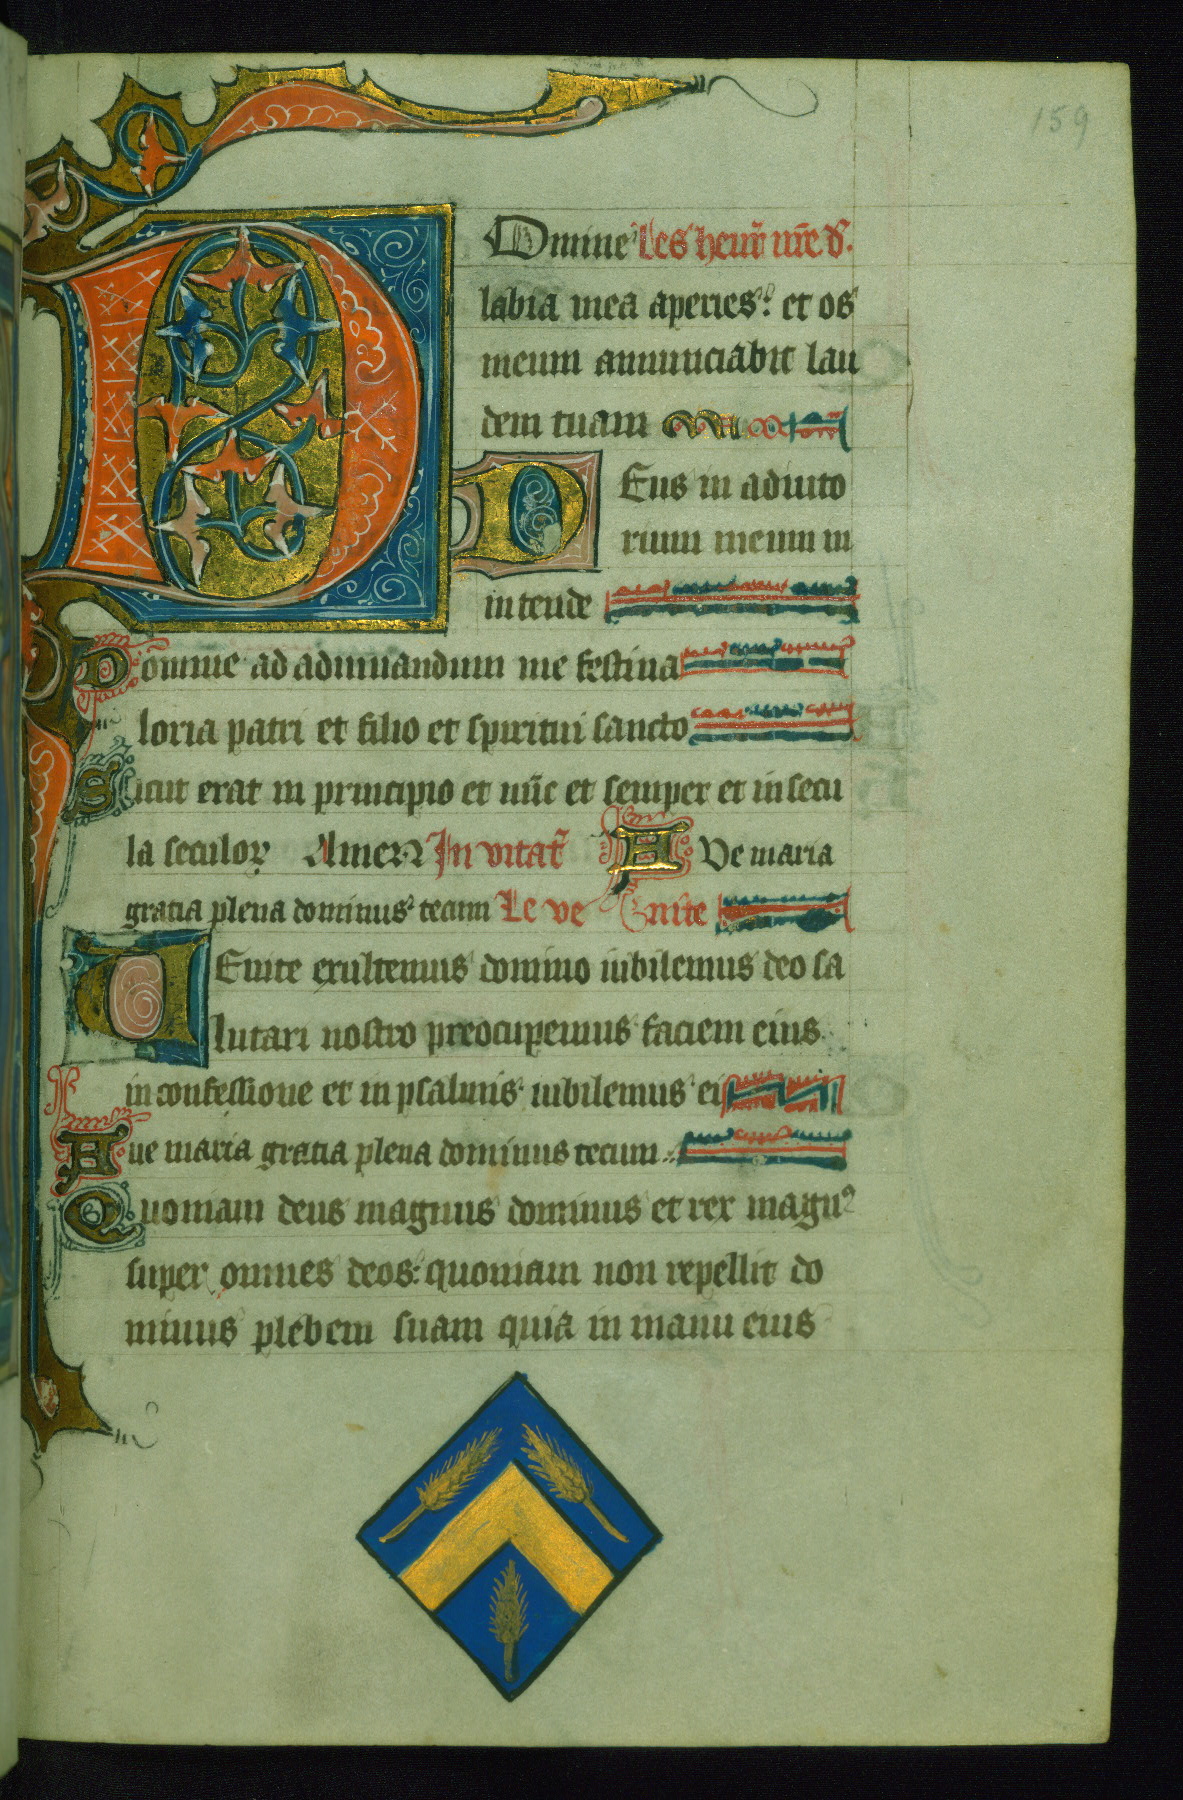 159
Domine Les heur̃ nr̃e d̃.
labia mea aperies: et os
meum annunciabit lau
dem tuam
DEus in adiuto
rium meum in
intende
Domine ad adiuuandum me festina
loria patri et filio et spiritui sancto
Sicut erat in principio et nũc et semper et in secu
la seculoꝝ Amen In vitat̃ AVe maria
gratia plena dominus tecum Le ve nite
VEnite exultemus domino iubilemus deo sa
lutari nostro preocupemus faciem eius
in confessione et in psalmis iubilemus ei
Aue maria gratia plena dominus tecum
Quoniam deus magnus dominus et rex magnꝰ
super omnes deos: quoniam non repellit do
minus plebem suam quia in manu eius